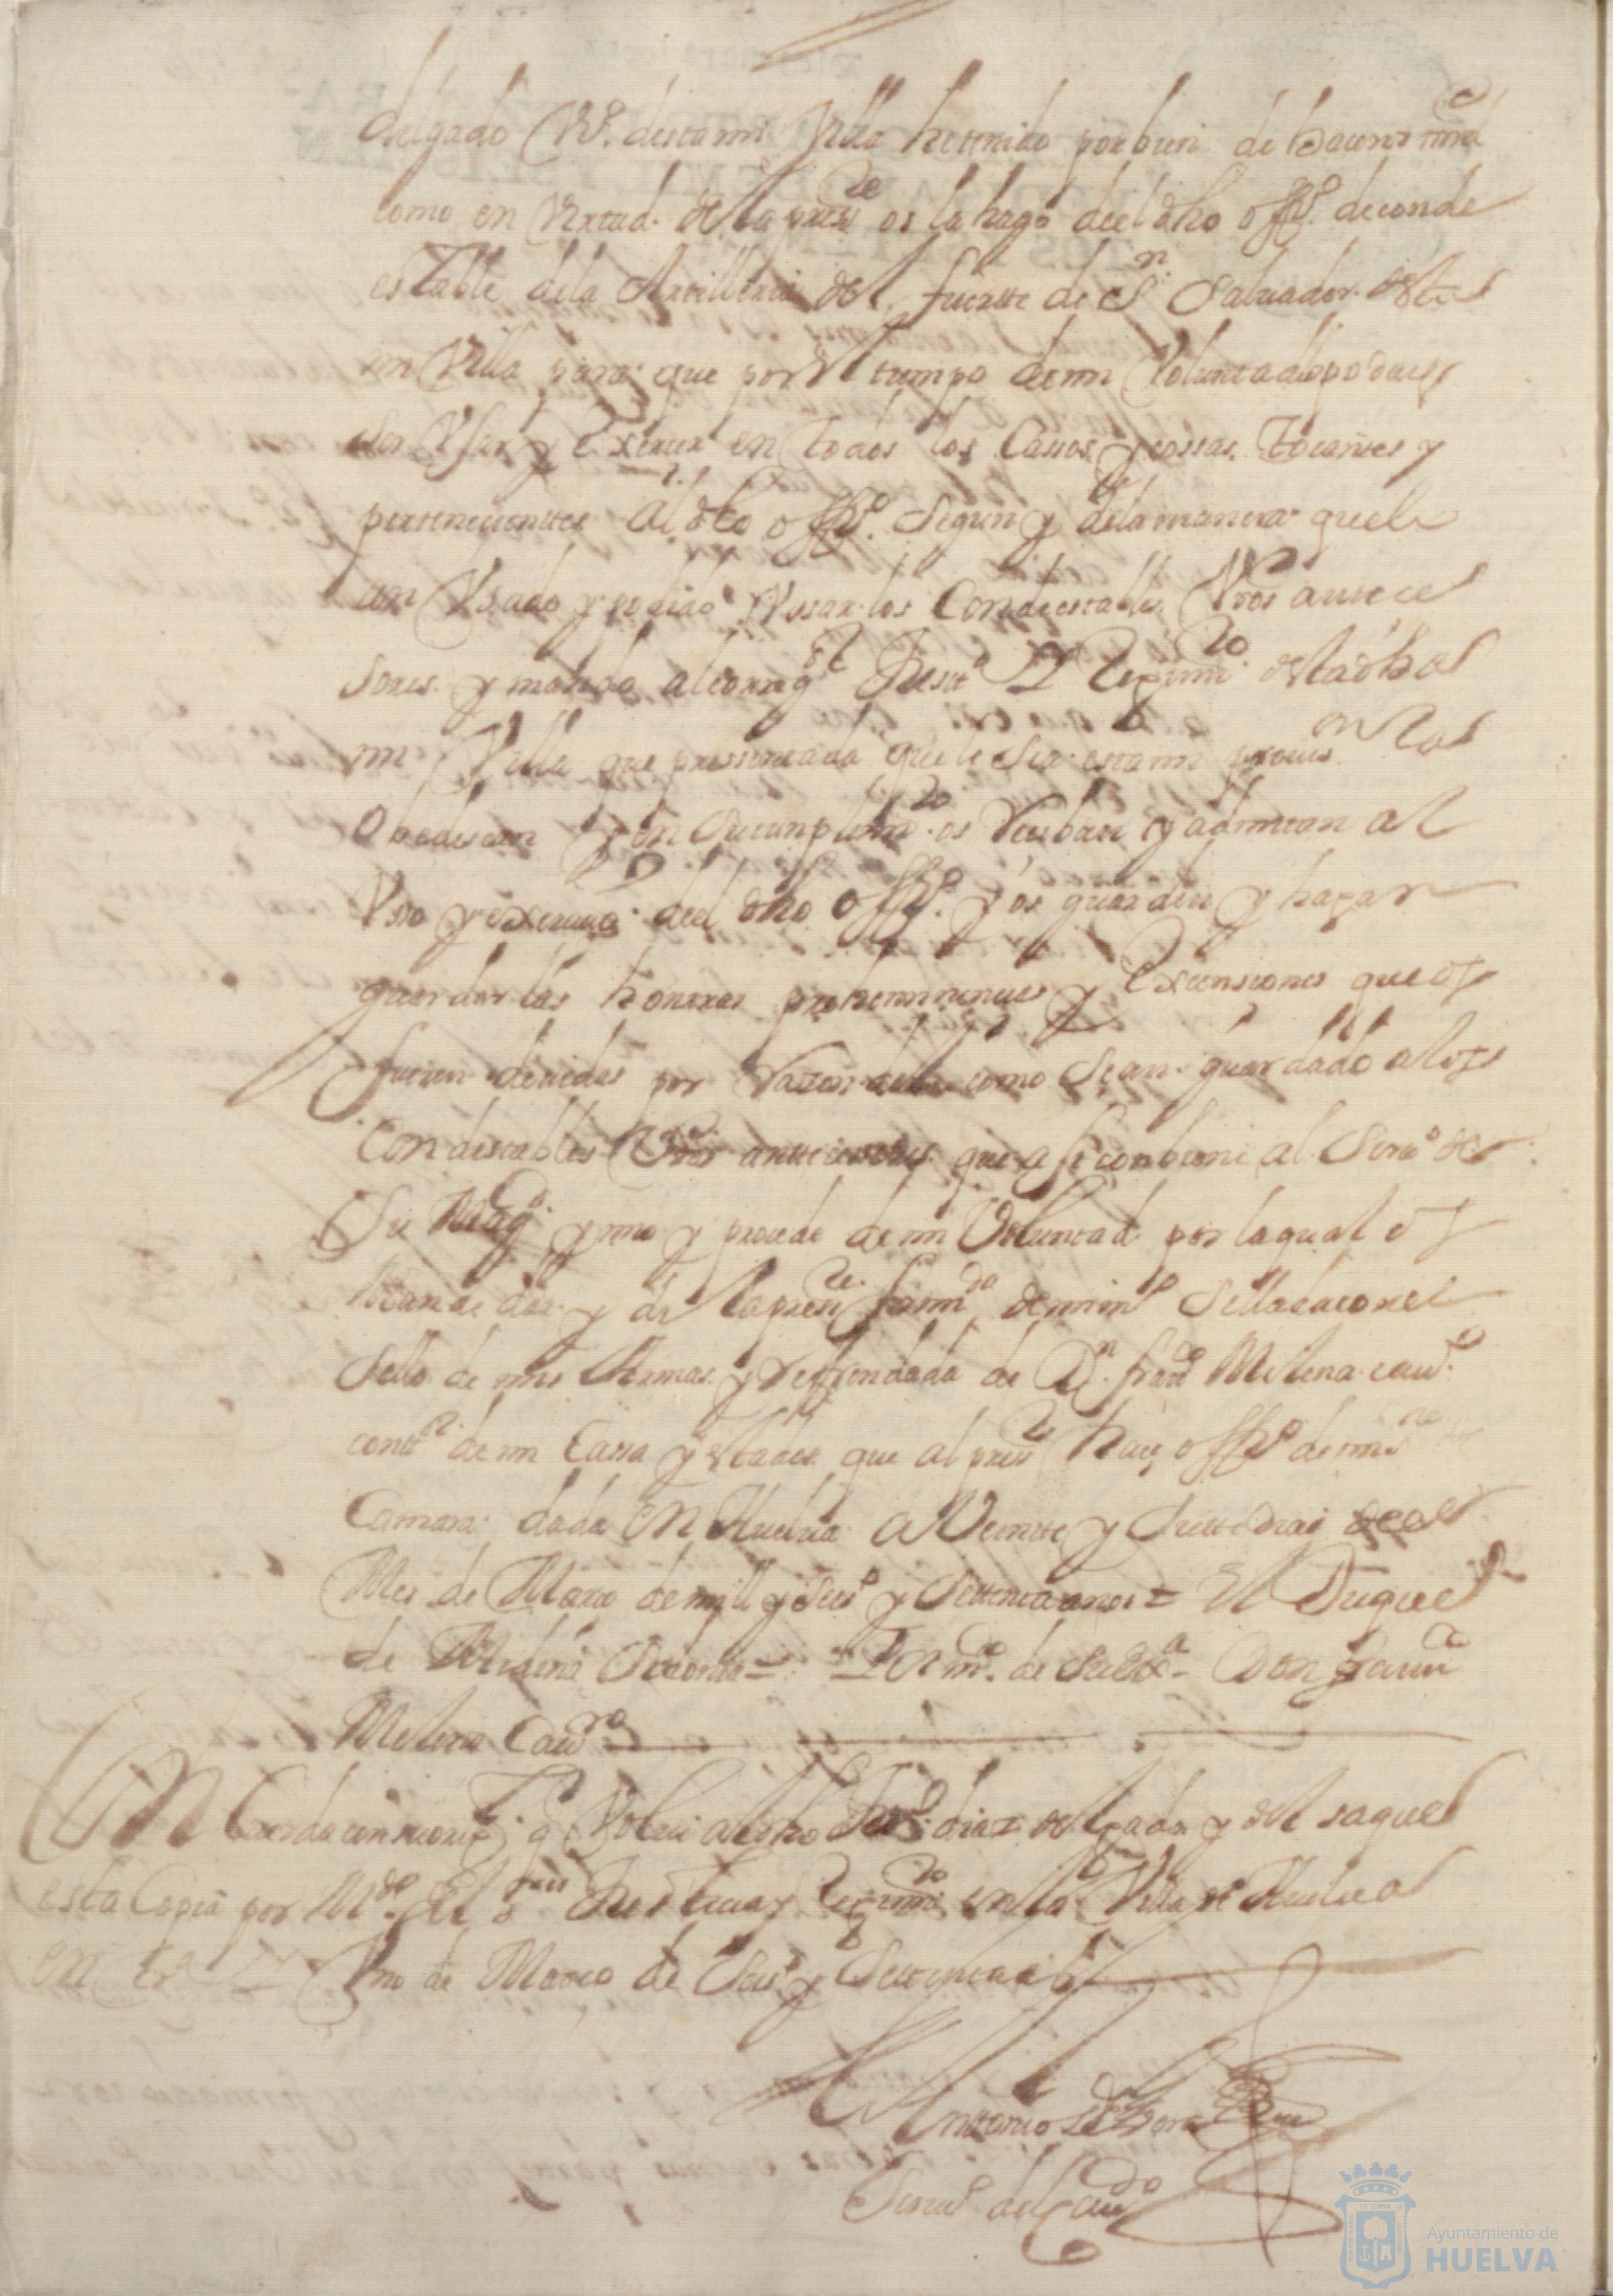 delgado Vº. desta mi Villa he tenido por bien de haceros mrd
como en Virtud de la preste os la hago del dho offº. de conde
estable de la Artilleria del fuerte de Sn Saluador desta
mi Villa para que por el tiempo de mi Voluntad lo podais
Vsar y Exercer en todos los Cassos y cossas Tocantes y
pertenecienttes Al dho offº. Segun y de la manera que lo
an Vsado y podido Vssar los Condestables Vros antece
sores y mando al correg Justª Y Reximto desta dha
mi Villa que pressentada que le sea esta mi prouisn Los
Obedescan y en Su cumplimto os Reciban y admitan al
Vsso y exercicio del dho offº. y os guarden y hagan
guardar las honrras preheminencias y Exsensiones que os
fueren deuidas por Rasson del como Se an guardado a los
Condestables Vros anttecesores que assi conbiene al Seruº de
Su Magd y mio y procede de mi Voluntad por la qual os
Mande dar y di la preste firmda de mi mº Sellada con el
Sello de mis Armas y Refrendada de Dn. franco Milena cauº
contr de mi Cassa y estados que al preste hace offº de mi
Camara dada En Huelua a Veintte y Siette dias del
Mes de Marco de mill y seisº y Settenta anos = El Duque
de Medina Sidonia = Por mdo. de Su Exa - Don franco
Milena Cauro
Concuerda con su orijl q Volui al dho diaz delgado y del saque
esta Copia por Mdo. de los Sres Justicia y Reximto en la Villa de Huelua
en tra y Vno de Marco de Seisº y Settenta as
Anttonio de
Scriuº del Cauдo